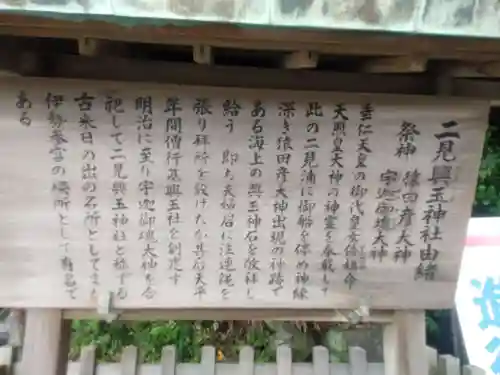 二見興玉神社由緒
祭神 猿田彦大神
宇迦御魂大神
垂仁天皇の御代皇女倭姫命
天照皇大神の神霊を奉戴して
此の二見浦に御船を停め神縁
深き猿田彦大神出現の神跡で
ある海上の興玉神石を敬拝し
給う 即ち夫婦岩に注連縄を
張り拝所を設けたが其后天平
年間僧行基興玉社を創建す
明治に至り宇迦御魂大神を合
祀して二見興玉神社と称する
古来日の出の名所としてまた
伊勢参宮の場所として有名で
ある